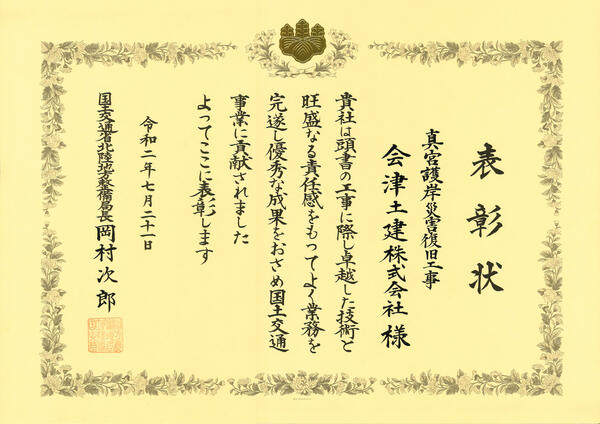 表彰状
真宮護岸災害復旧工事
会津土建株式会社 様
貴社は頭書の工事に際し卓越した技術と
旺盛なる責任感をもってよく業務を
完遂し優秀な成果をおさめ国土交通
事業に貢献されました
よってここに表彰します
令和二年七月二十一日
国土交通省北陸地方整備局長 岡村次郎